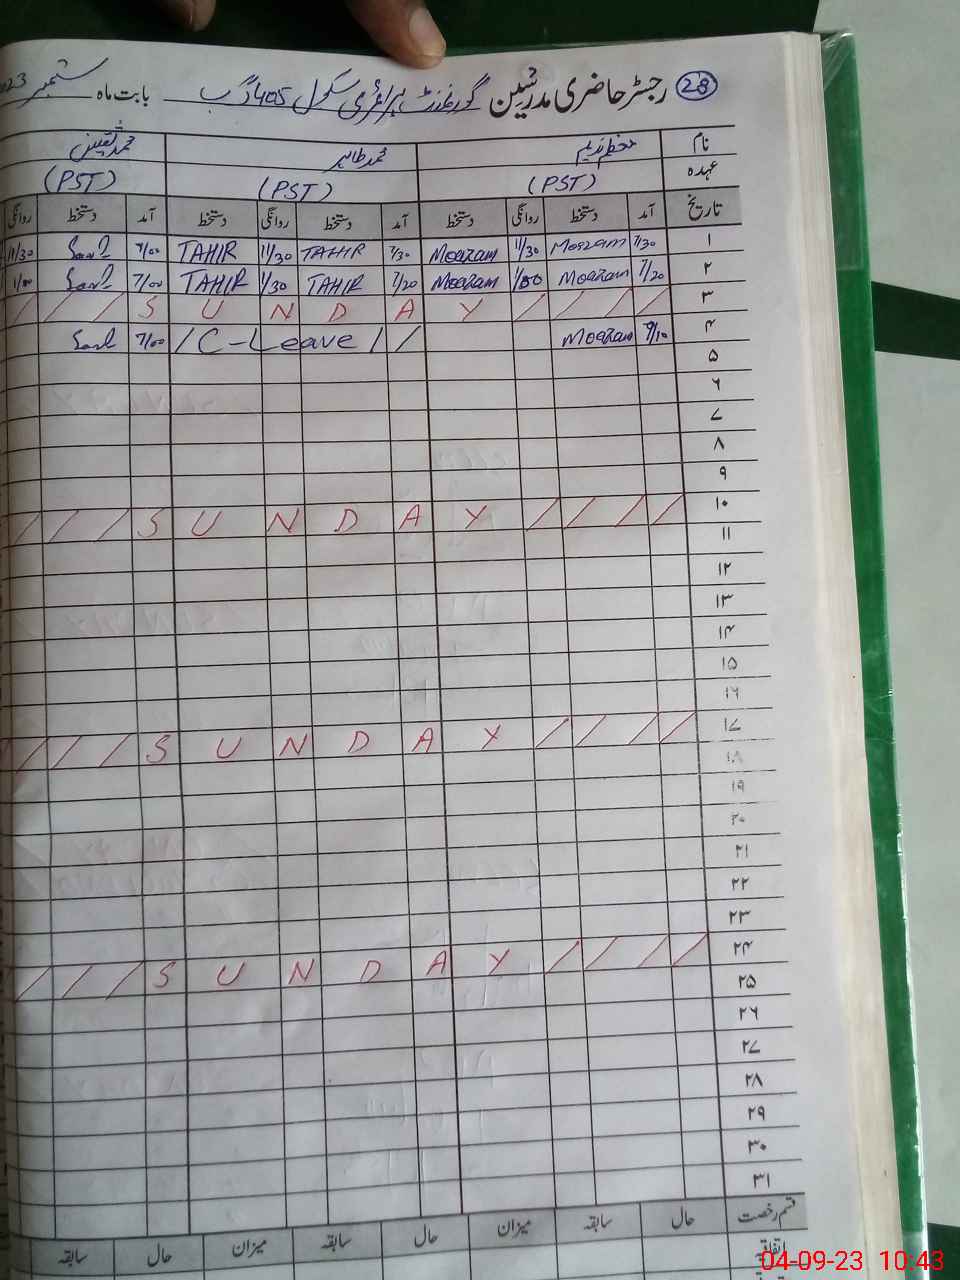 28 رجسٹر حاضری مدرسین گورنمنٹ پرائمری سکول 405 گ ب بابت ماہ ستمبر 2023
نام معظم ندیم محمد طاہر محمد ثقلین
عہدہ (PST) (PST) (PST)
تاریخ آمد دستخط روانگی دستخط آمد دستخط روانگی دستخط آمد دستخط روانگی
۱ 7/30 Moazam 11/30 Moazam 7/30 TAHIR 11/30 TAHIR 7/00 11/30
۲ 7/20 Moazam Moazam 7/20 TAHIR 1/30 TAHIR 7/00 1/00
۳ / / / / S U N D A Y / / /
۴ Moazam / C-Leave / / 7/00
۵
۶
۷
۸
۹
۱۰ / / / / S U N D A Y / / /
۱۱
۱۲
۱۳
۱۴
۱۵
۱۶
۱۷ / / / / S U N D A Y / / /
۱۸
۱۹
۲۰
۲۱
۲۲
۲۳
۲۴ / / / / S U N D A Y / / /
۲۵
۲۶
۲۷
۲۸
۲۹
۳۰
۳۱
قسم رخصت حال سابقہ میزان حال سابقہ میزان حال سابقہ
اتفاقیہ
04-09-23 10:43